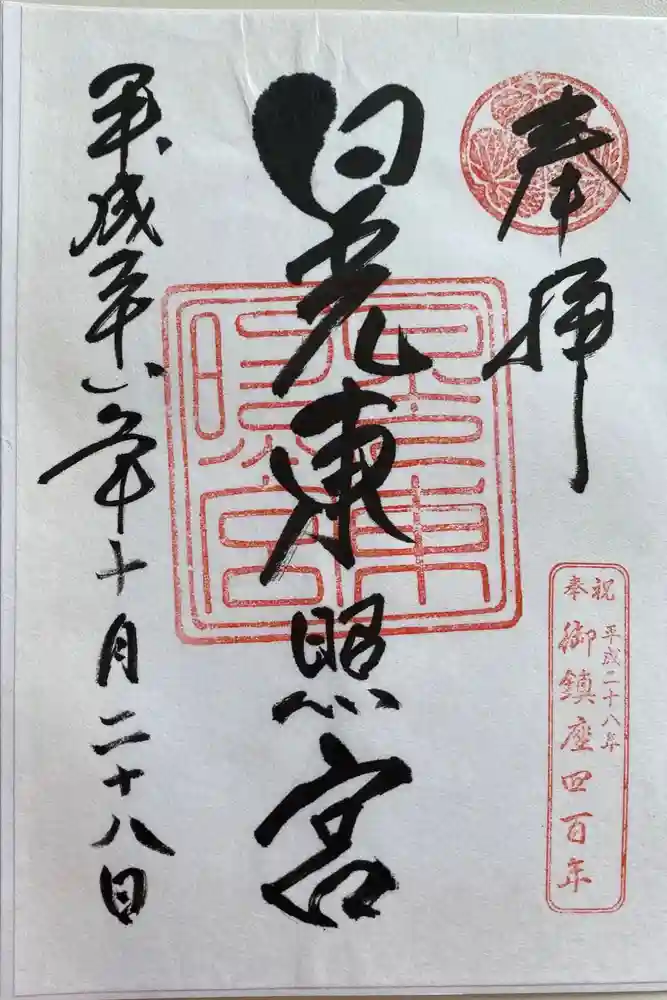 奉拝
日光東照宮
平成二十八年十月二十八日
奉祝
平成二十八年
御鎮座四百年